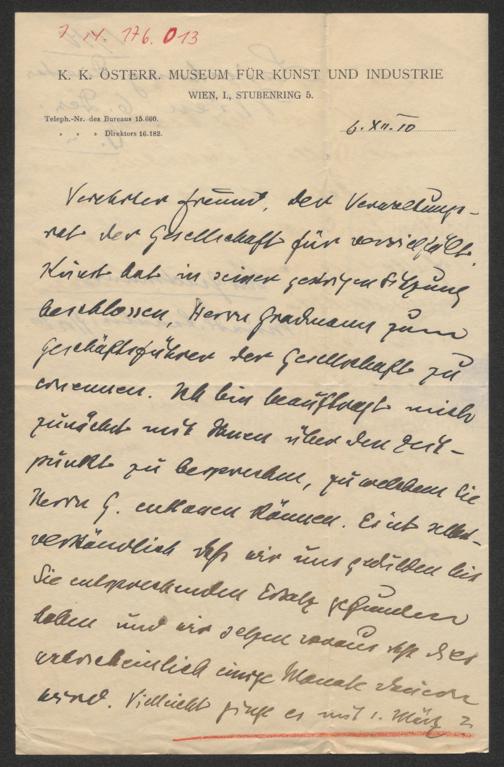 7 N. 176.013
K. K. ÖSTERR. MUSEUM FÜR KUNST UND INDUSTRIE
WIEN, I., STUBENRING 5.
Teleph.-Nr. des Bureaus 15.660.
" " " Direktors 16.182.
6. XII. 10
Verehrter Freund, der Verwaltungs-
rat der Gesellschaft für vervielfält.
Kunst hat in seiner gestrigen Sitzung
beschlossen, Herrn Gradmann zum
Geschäftsführer der Gesellschaft zu
ernennen. Ich bin beauftragt mich
zunächst mit Ihnen über den Zeit-
punkt zu besprechen, zu welchem Sie
Herrn G. entlassen können. Es ist selbst-
verständlich daß wir uns gedulden bis
Sie entsprechenden Ersatz gefunden
haben und wir setzen voraus daß dies
wahrscheinlich einige Monate dauern
wird. Vielleicht ginge es mit 1. März?